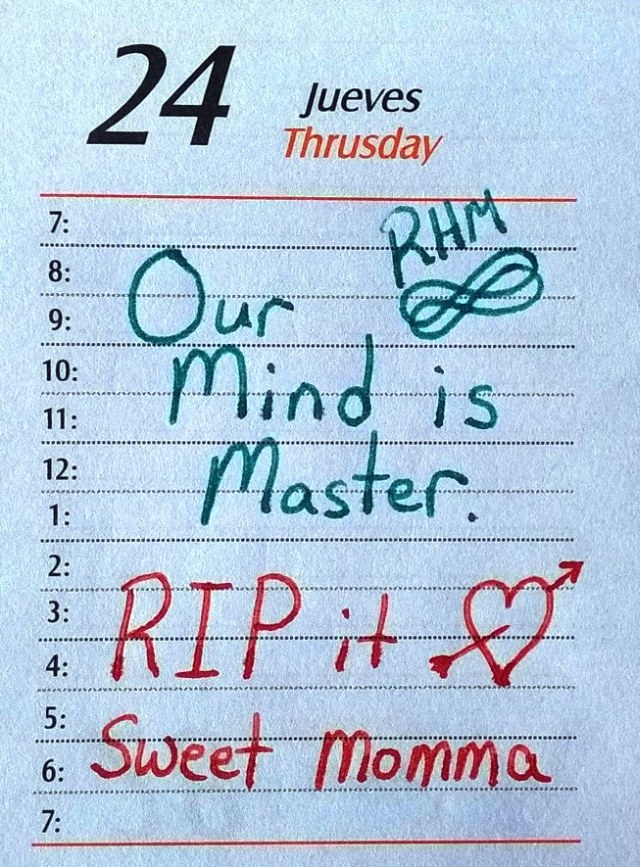 24 Jueves
Thrusday
7:
RHM
8:
Our
9:
10:
Mind is
11:
12:
Master.
1:
2:
3:
RIP it
4:
5:
Sweet Momma
6:
7: